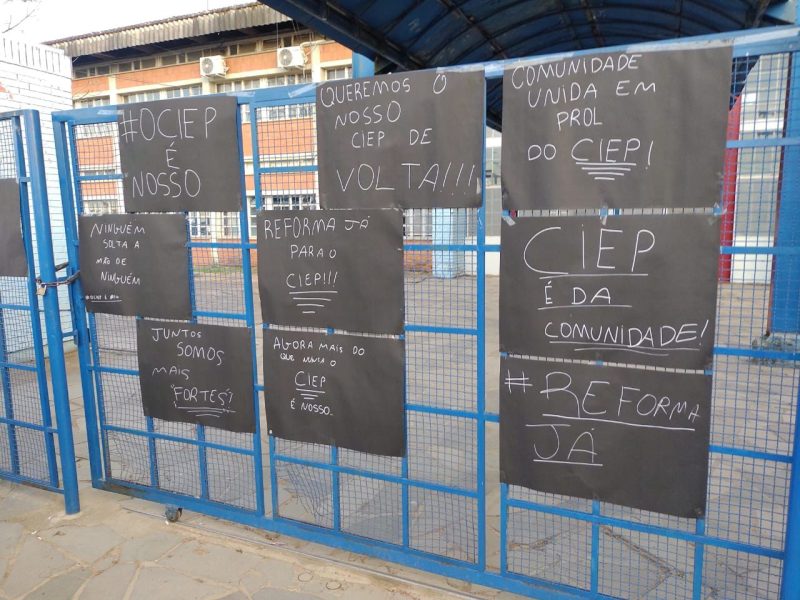 #OCIEP
É
"NOSSO
QUEREMOS O
NOSSO
CIEP DE
VOLTA!!!
COMUNIDADE
UNIDA EM
PROL
DO CIEP!
NINGUÉM
SOLTA A
MÃO DE
NINGUÉM
REFORMA JÁ
PARA O
CIEP!!!
CIEP
É DA
COMUNIDADE!
JUNTOS
SOMOS
MAIS
"FORTES"!
AGORA MAIS DO
QUE NUNCA O
CIEP
É NOSSO.
#REFORMA
JÁ